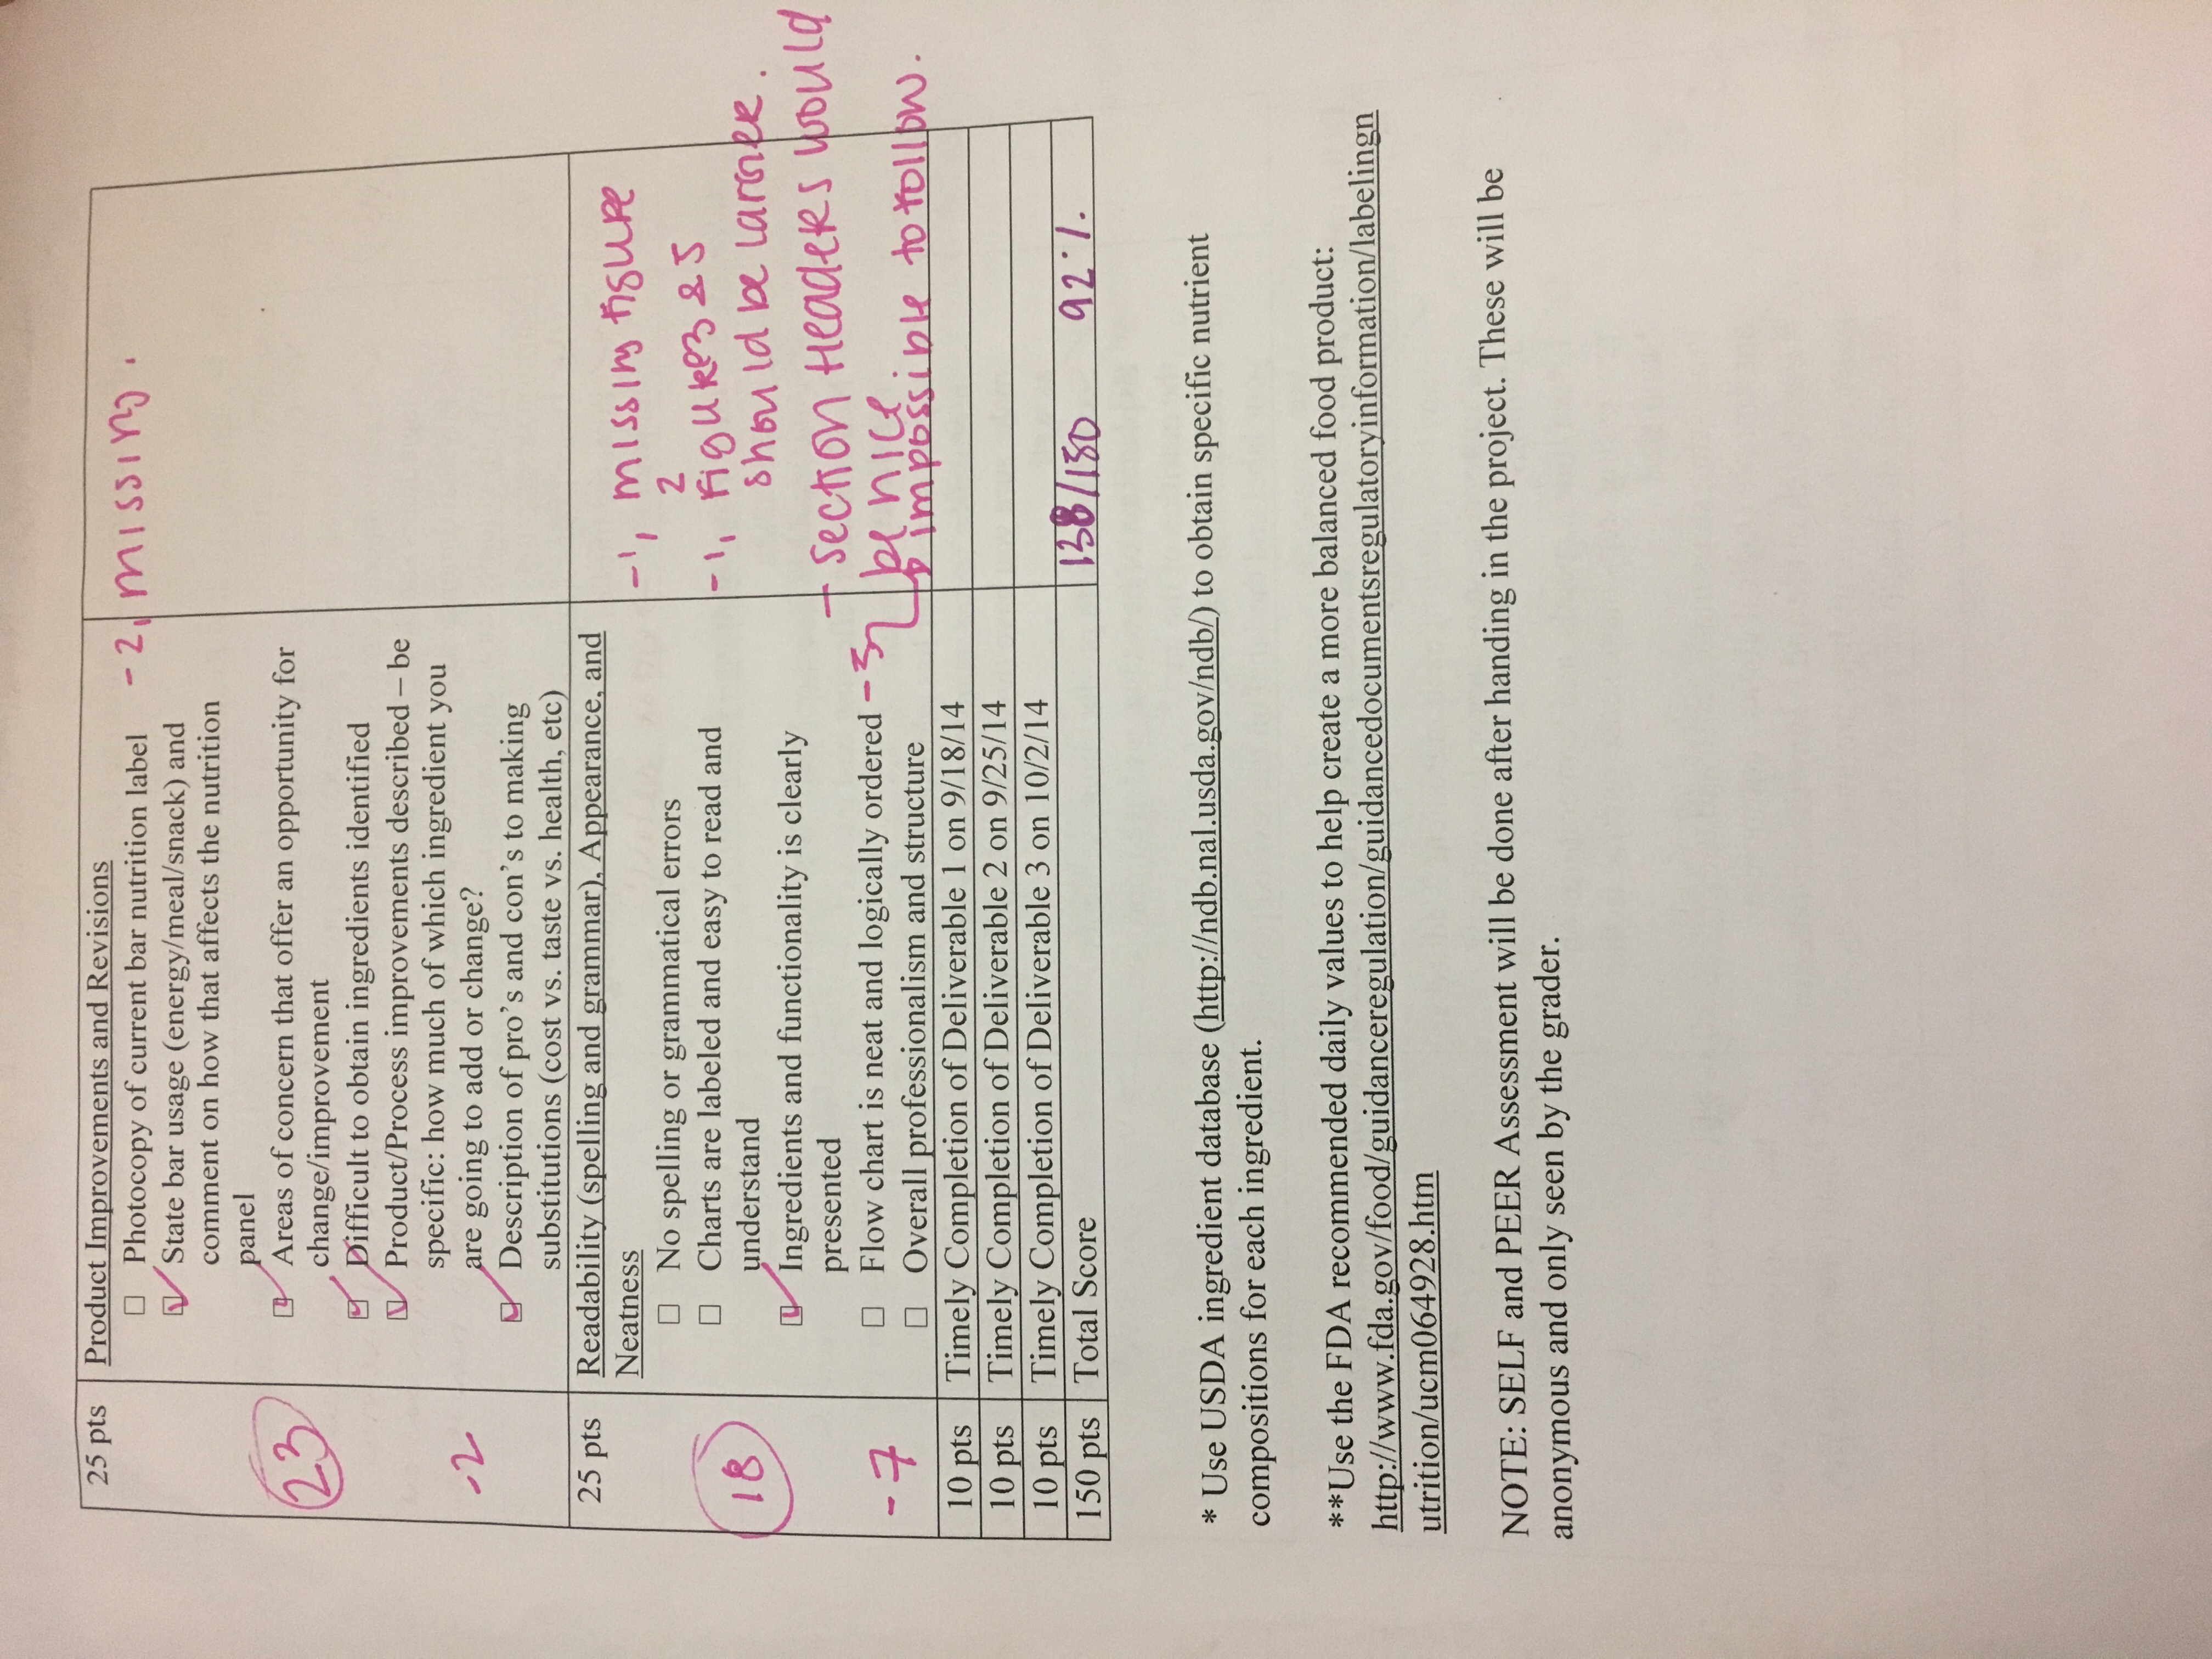 25 pts Product Improvements and Revisions
☐ Photocopy of current bar nutrition label -2, missing.
☑ State bar usage (energy/meal/snack) and
comment on how that affects the nutrition
panel
23
☑ Areas of concern that offer an opportunity for
change/improvement
☑ Difficult to obtain ingredients identified
☑ Product/Process improvements described – be
specific: how much of which ingredient you
-2
are going to add or change?
☑ Description of pro's and con's to making
substitutions (cost vs. taste vs. health, etc)
25 pts Readability (spelling and grammar), Appearance, and
Neatness
-1, missing figure
2
☐ No spelling or grammatical errors
☐ Charts are labeled and easy to read and
understand
-1, Figure 3 & 5
should be larger.
18
☑ Ingredients and functionality is clearly
presented
- Section Headers would
be nice.
☐ Flow chart is neat and logically ordered -5
impossible to follow.
-7
☐ Overall professionalism and structure
10 pts Timely Completion of Deliverable 1 on 9/18/14
10 pts Timely Completion of Deliverable 2 on 9/25/14
10 pts Timely Completion of Deliverable 3 on 10/2/14
150 pts Total Score 138/150 92%
* Use USDA ingredient database (http://ndb.nal.usda.gov/ndb/) to obtain specific nutrient
compositions for each ingredient.
**Use the FDA recommended daily values to help create a more balanced food product:
http://www.fda.gov/food/guidanceregulation/guidancedocumentsregulatoryinformation/labelingn
utrition/ucm064928.htm
NOTE: SELF and PEER Assessment will be done after handing in the project. These will be
anonymous and only seen by the grader.